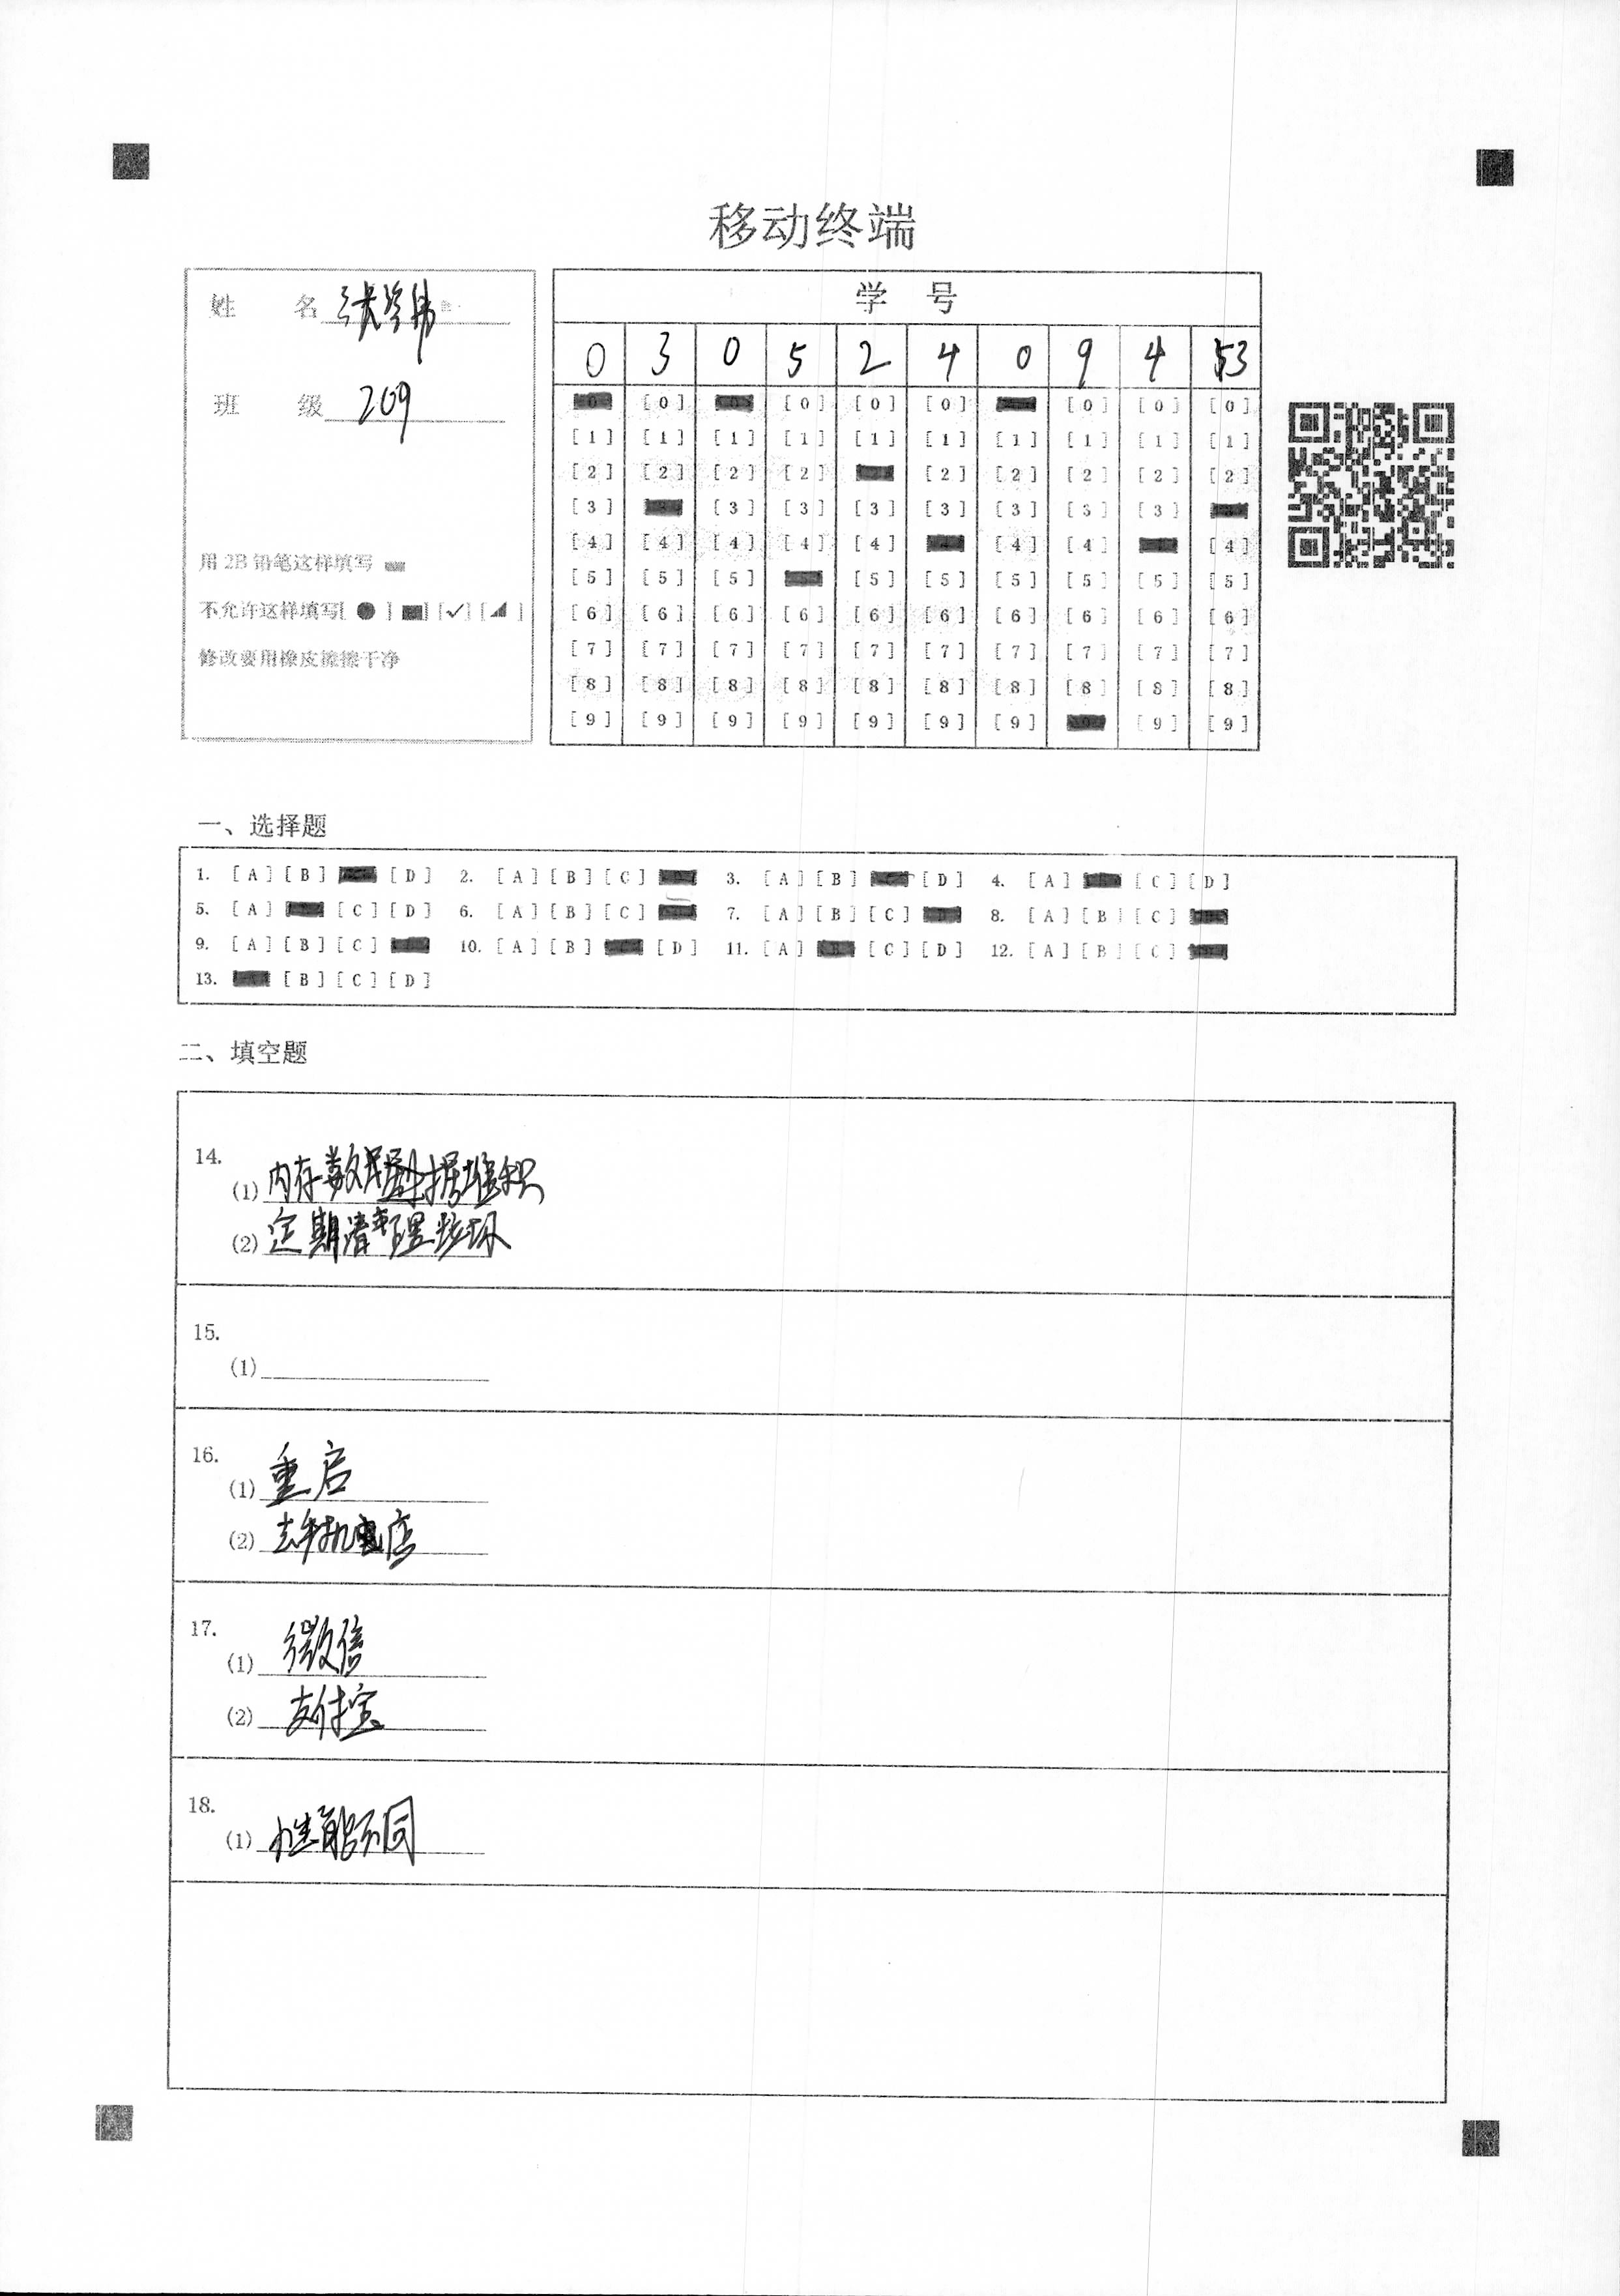 移动终端
姓 名 张学伟
班 级 209
用 2B 铅笔这样填写
不允许这样填写[ ● ] [■] [✓] [◢ ]
修改要用橡皮擦擦干净
学 号
0 3 0 5 2 4 0 9 4 3
[0] [0] [0] [0] [0] [0] [0]
[1] [1] [1] [1] [1] [1] [1] [1] [1] [1]
[2] [2] [2] [2] [2] [2] [2] [2] [2]
[3] [3] [3] [3] [3] [3] [3] [3]
[4] [4] [4] [4] [4] [4] [4] [4]
[5] [5] [5] [5] [5] [5] [5] [5] [5]
[6] [6] [6] [6] [6] [6] [6] [6] [6] [6]
[7] [7] [7] [7] [7] [7] [7] [7] [7] [7]
[8] [8] [8] [8] [8] [8] [8] [8] [8] [8]
[9] [9] [9] [9] [9] [9] [9] [9] [9]
一、选择题
1. [A] [B] [D] 2. [A] [B] [C] 3. [A] [B] [D] 4. [A] [C] [D]
5. [A] [C] [D] 6. [A] [B] [C] 7. [A] [B] [C] 8. [A] [B] [C]
9. [A] [B] [C] 10. [A] [B] [D] 11. [A] [C] [D] 12. [A] [B] [C]
13. [B] [C] [D]
二、填空题
14.
(1) 内存数据堆积
(2) 定期清理垃圾
15.
(1)
16.
(1) 重启
(2) 去手机店
17.
(1) 微信
(2) 支付宝
18.
(1) 性能不同